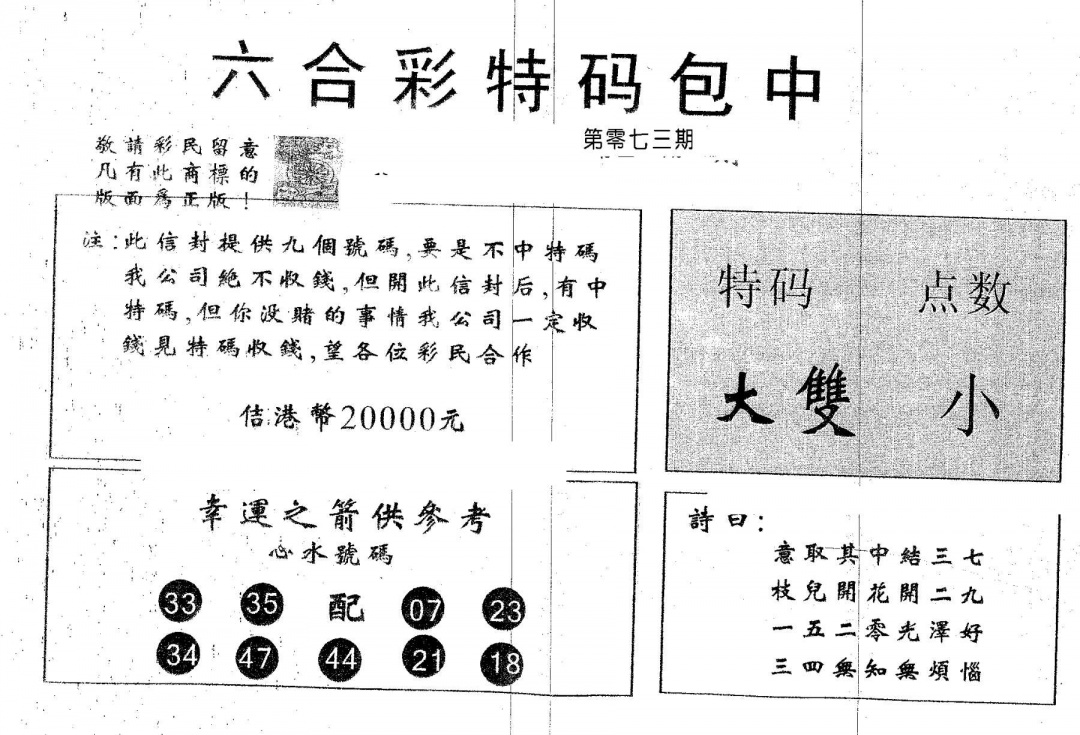 六合彩特码包中
第零七三期
敬請彩民留意
凡有此商標的
版面爲正版！
注:此信封提供九個號碼,要是不中特碼
我公司絶不收錢,但開此信封后,有中
特碼,但你没賭的事情我公司一定收
錢見特碼收錢,望各位彩民合作
佶港幣20000元
特码 点数
大雙 小
幸運之箭供參考
心水號碼
33 35 配 07 23
34 47 44 21 18
詩曰：
意取其中結三七
枝兒開花開二九
一五二零光澤好
三四無知無煩惱